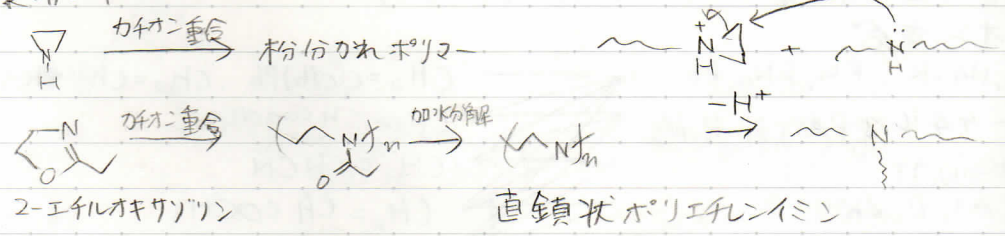 カチオン重合
枝分かれポリマー
N
H
+
N
H
+
N̈
−H⁺
カチオン重合
加水分解
N
O
N
n
O
N
n
N
2-エチルオキサゾリン
直鎖状ポリエチレンイミン